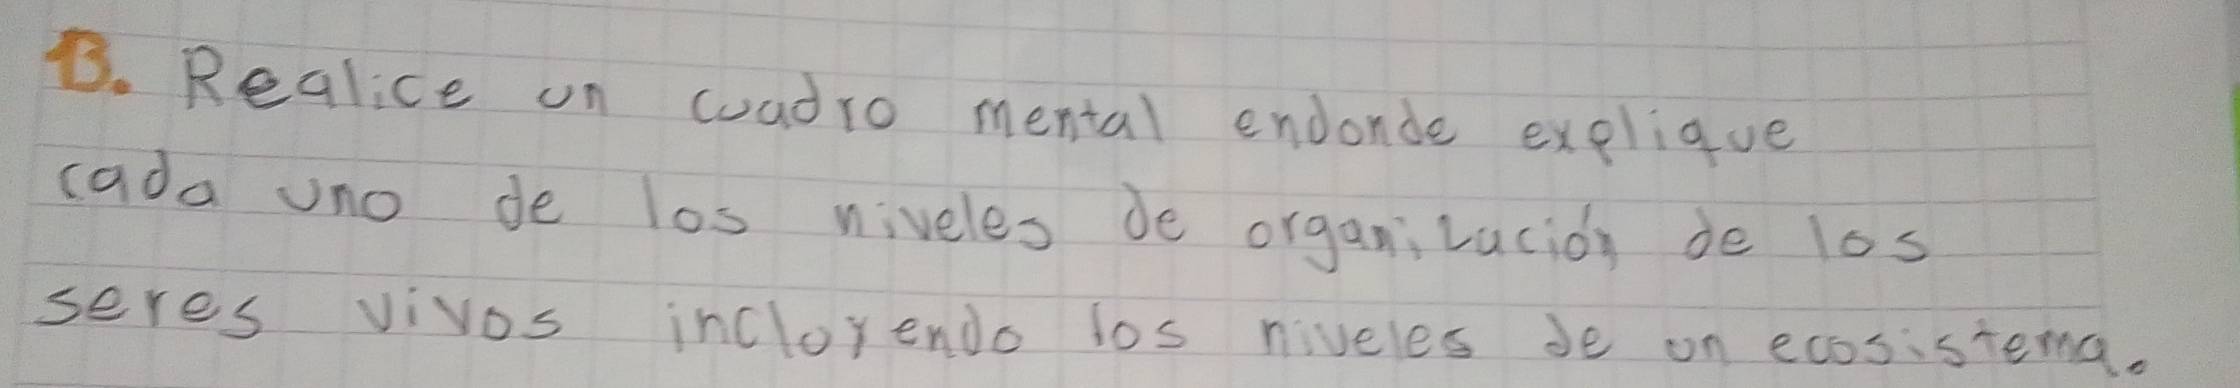 B. Realice un cuadro mental endonde explique
cada uno de los niveles de organización de los
seres vivos incluyendo los niveles de un ecosistema.